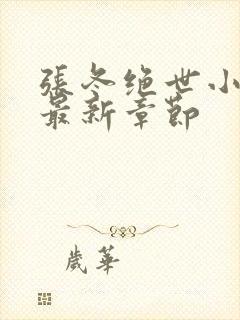 張冬绝世小
最新章節
歲華